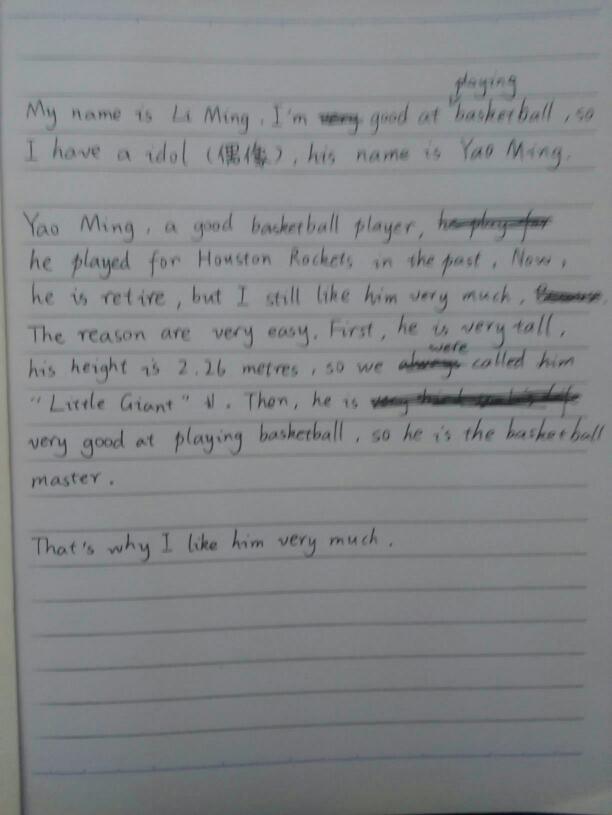 My name is Li Ming. I'm good at playing basketball, so
I have a idol (偶像), his name is Yao Ming.
Yao Ming, a good basketball player,
he played for Houston Rockets in the past. Now,
he is retire, but I still like him very much,
The reason are very easy. First, he is very tall,
his height is 2.26 metres, so we were called him
"Little Giant". Then, he is
very good at playing basketball, so he is the basketball
master.
That's why I like him very much.